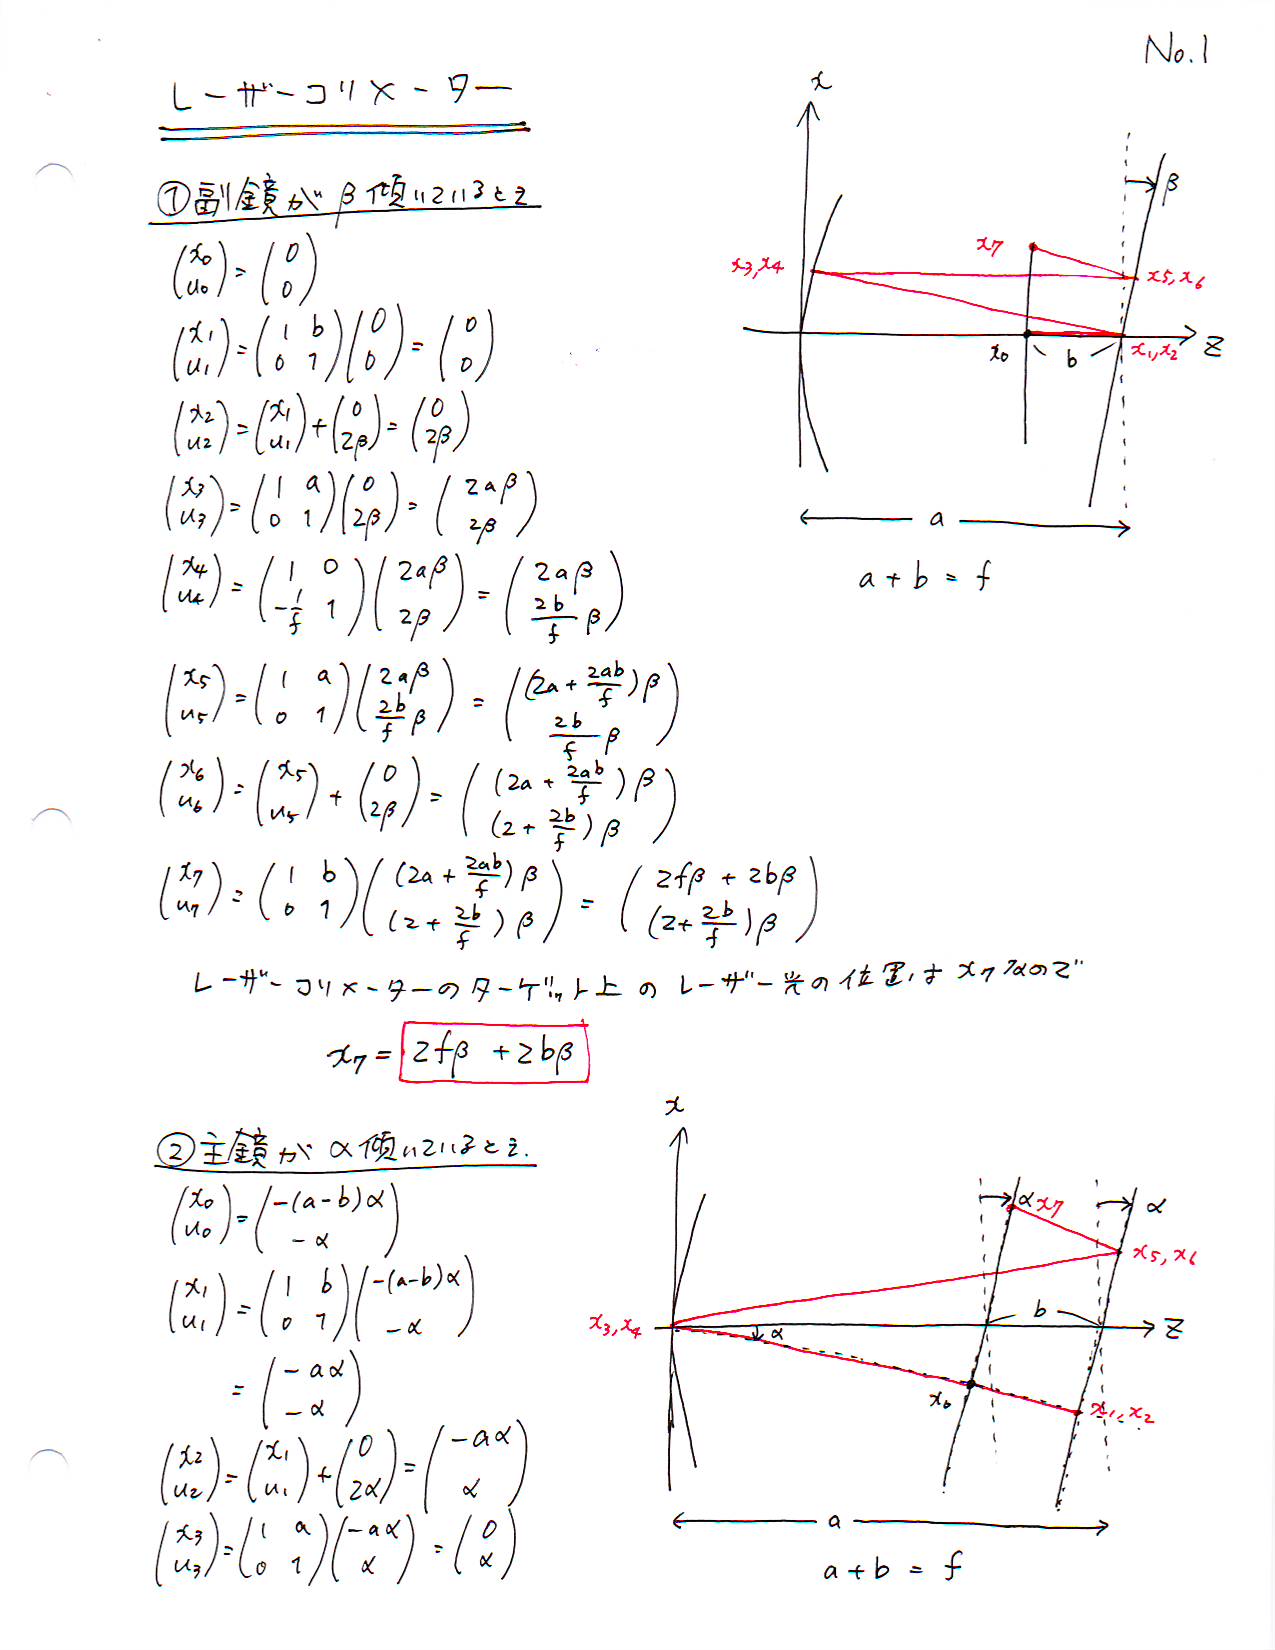 No.1
レーザーコリメーター
①副鏡が β傾いているとき
(x0 u0) = (0 0)
(x1 u1) = (1 b 0 1)(0 0) = (0 0)
(x2 u2) = (x1 u1) + (0 2β) = (0 2β)
(x3 u3) = (1 a 0 1)(0 2β) = (2aβ 2β)
(x4 u4) = (1 0 -1/f 1)(2aβ 2β) = (2aβ 2b/f β)
(x5 u5) = (1 a 0 1)(2aβ 2b/f β) = ((2a + 2ab/f)β 2b/f β)
(x6 u6) = (x5 u5) + (0 2β) = ((2a + 2ab/f)β (2 + 2b/f)β)
(x7 u7) = (1 b 0 1)((2a + 2ab/f)β (2 + 2b/f)β) = (2fβ + 2bβ (2 + 2b/f)β)
レーザーコリメーターのターゲット上のレーザー光の位置は x7なので
x7 = 2fβ + 2bβ
x
β
x7
x3,x4
x5,x6
x0
b
x1,x2
Z
a
a + b = f
②主鏡が α傾いているとき.
(x0 u0) = (-(a-b)α -α)
(x1 u1) = (1 b 0 1)(-(a-b)α -α)
= (-aα -α)
(x2 u2) = (x1 u1) + (0 2α) = (-aα α)
(x3 u3) = (1 a 0 1)(-aα α) = (0 α)
x
α
x7
α
x5,x6
b
x3,x4
α
Z
x0
x1,x2
a
a + b = f